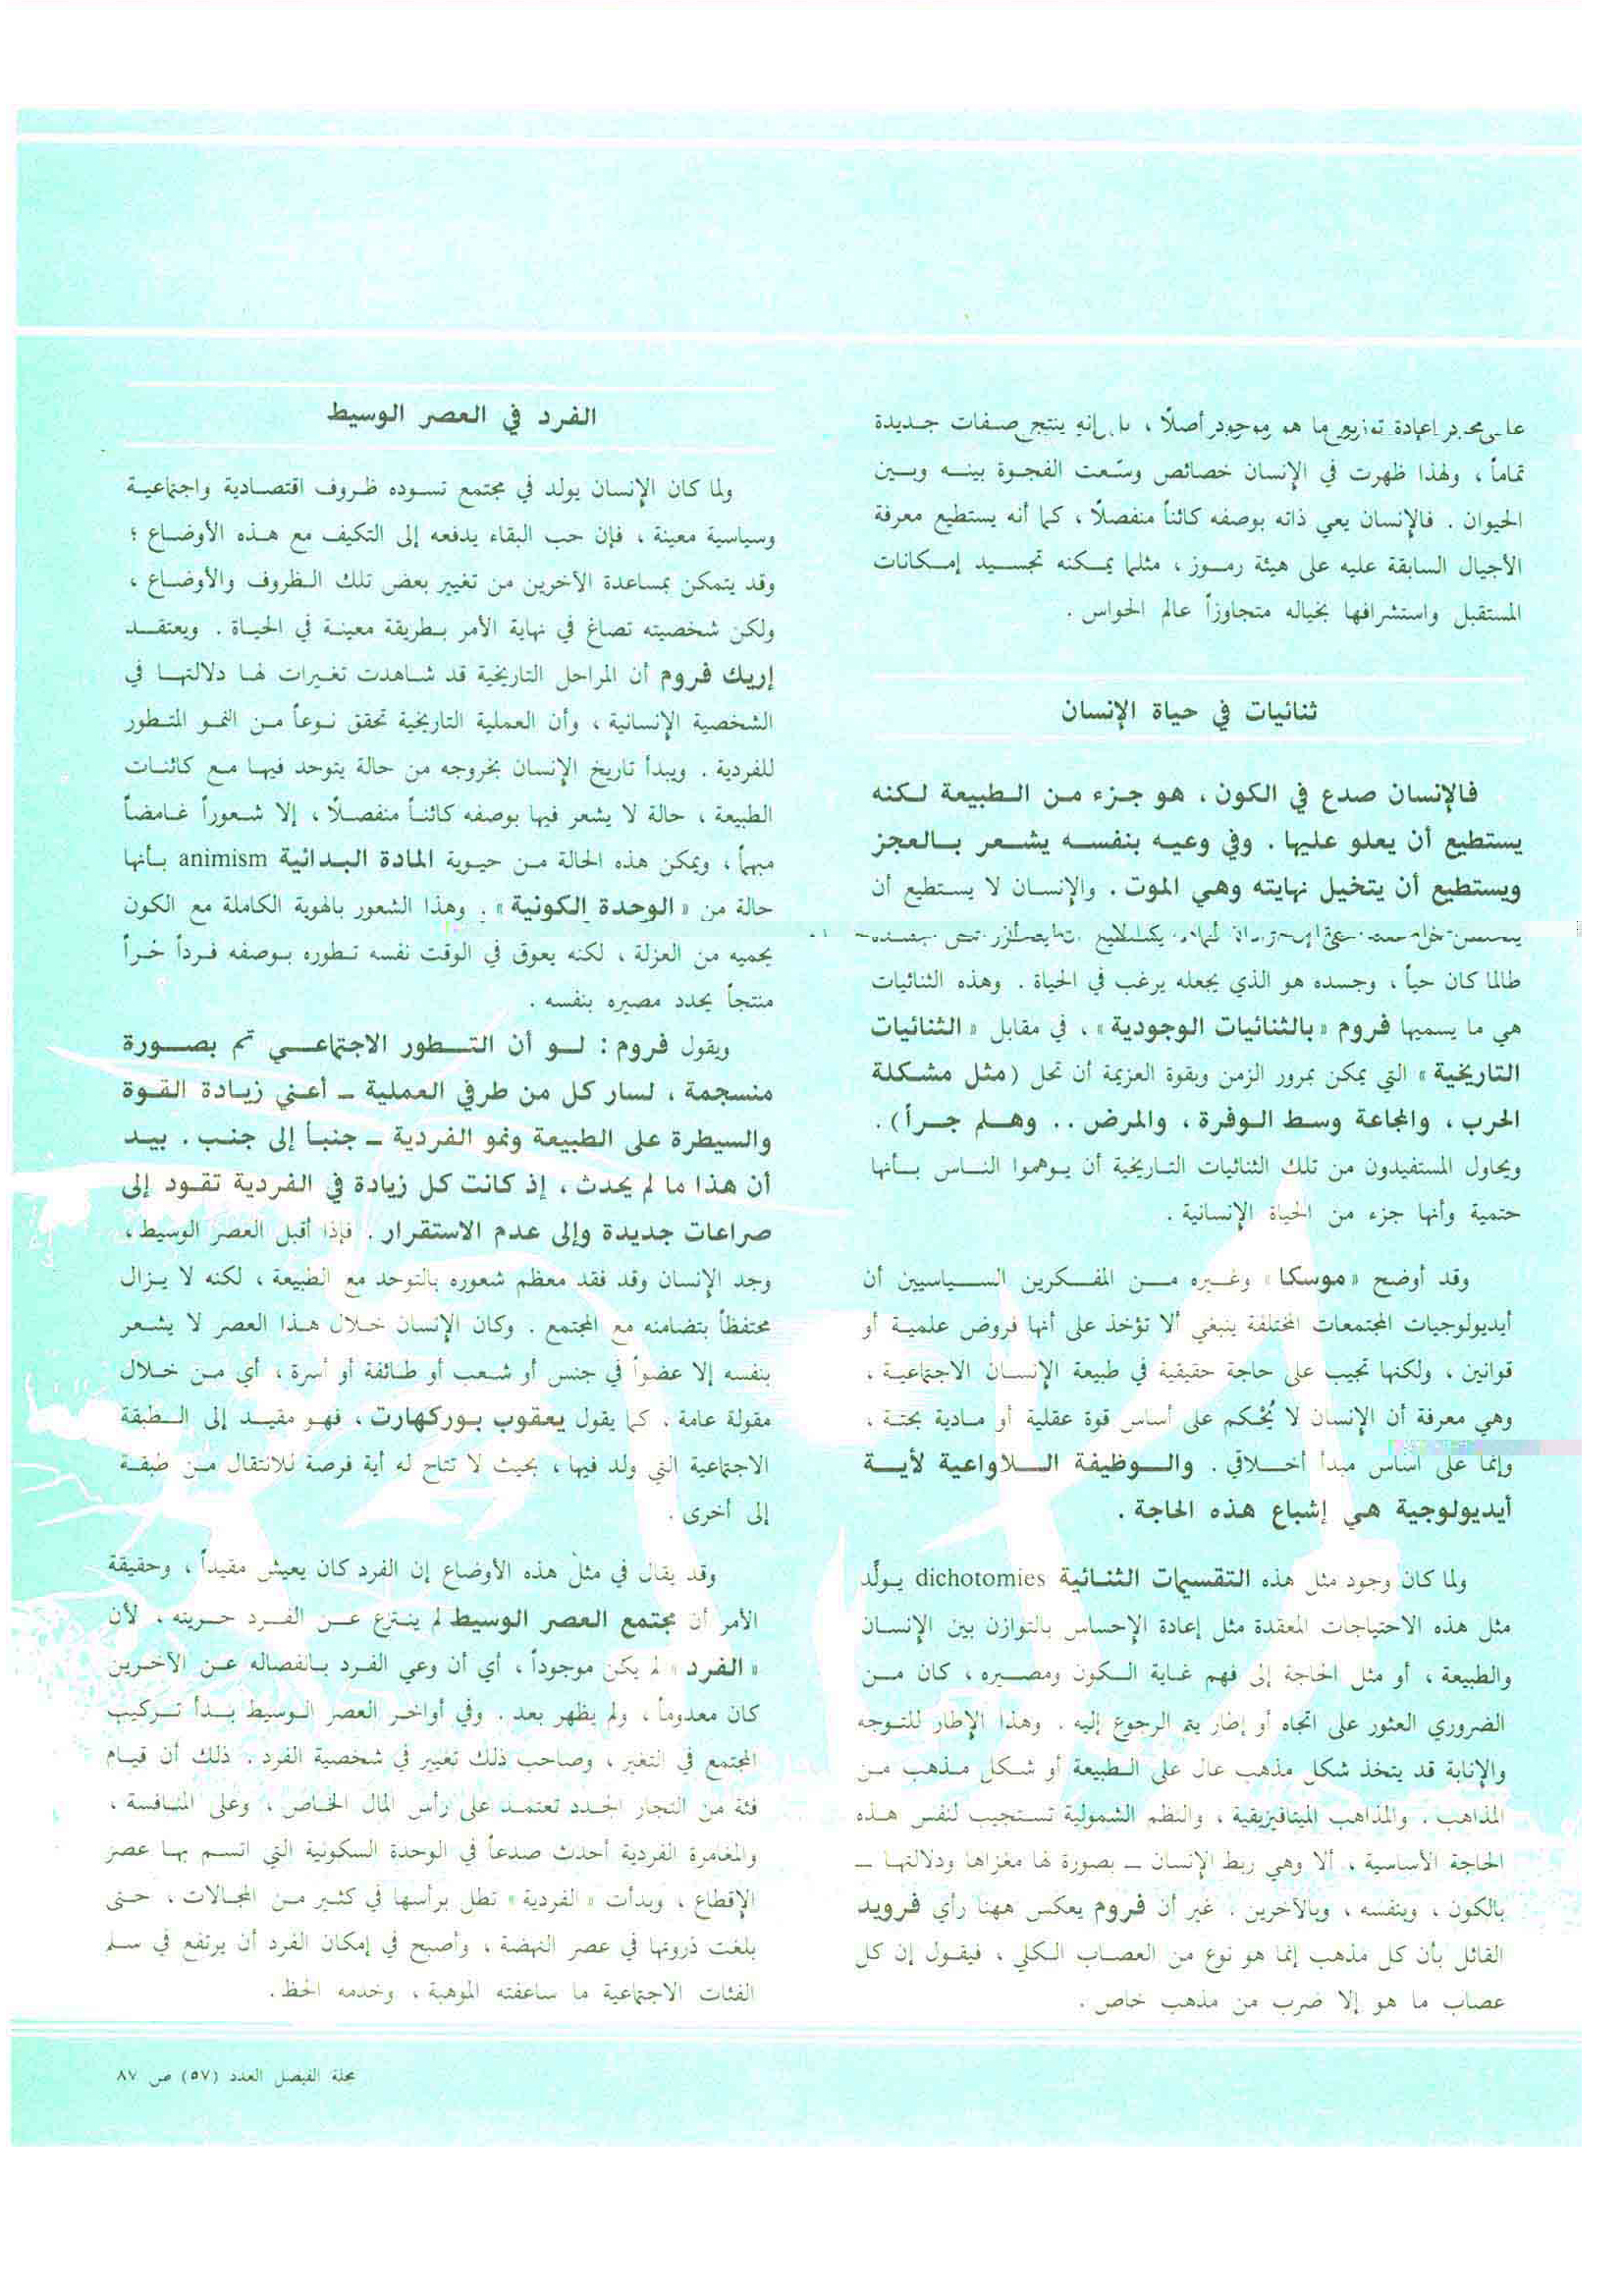 على مجرد إعادة توزيع ما هو موجود أصلاً ، بل إنه ينتج صفات جديدة
تماماً ، ولهذا ظهرت في الإنسان خصائص وسّعت الفجوة بينه وبين
الحيوان . فالإنسان يعي ذاته بوصفه كائناً منفصلاً ، كما أنه يستطيع معرفة
الأجيال السابقة عليه على هيئة رموز ، مثلما يمكنه تجسيد إمكانات
المستقبل واستشرافها بخياله متجاوزاً عالم الحواس .
ثنائيات في حياة الإنسان
فالإنسان صدع في الكون ، هو جزء من الطبيعة لكنه
يستطيع أن يعلو عليها . وفي وعيه بنفسه يشعر بالعجز
ويستطيع أن يتخيل نهايته وهي الموت . والإنسان لا يستطيع أن
طالما كان حياً ، وجسده هو الذي يجعله يرغب في الحياة . وهذه الثنائيات
هي ما يسميها فروم « بالثنائيات الوجودية » ، في مقابل « الثنائيات
التاريخية » التي يمكن بمرور الزمن وبقوة العزيمة أن تحل (مثل مشكلة
الحرب ، والمجاعة وسط الوفرة ، والمرض .. وهلم جراً) .
ويحاول المستفيدون من تلك الثنائيات التاريخية أن يوهموا الناس بأنها
حتمية وأنها جزء من الحياة الإنسانية .
وقد أوضح « موسكا » وغيره من المفكرين السياسيين أن
أيديولوجيات المجتمعات المختلفة ينبغي ألا تؤخذ على أنها فروض علمية أو
قوانين ، ولكنها تجيب على حاجة حقيقية في طبيعة الإنسان الاجتماعية ،
وهي معرفة أن الإنسان لا يُحْكم على أساس قوة عقلية أو مادية بحتة ،
وإنما على أساس مبدأ أخلاقي . والوظيفة اللاواعية لأية
أيديولوجية هي إشباع هذه الحاجة .
ولما كان وجود مثل هذه التقسيمات الثنائية dichotomies يولّد
مثل هذه الاحتياجات المعقدة مثل إعادة الإحساس بالتوازن بين الإنسان
والطبيعة ، أو مثل الحاجة إلى فهم غاية الكون ومصيره ، كان من
الضروري العثور على اتجاه أو إطار يتم الرجوع إليه . وهذا الإطار للتوجه
والإنابة قد يتخذ شكل مذهب عال على الطبيعة أو شكل مذهب من
المذاهب . والمذاهب الميتافيزيقية ، والنظم الشمولية تستجيب لنفس هذه
الحاجة الأساسية ، ألا وهي ربط الإنسان ــ بصورة لها مغزاها ودلالتها ــ
بالكون ، وبنفسه ، وبالآخرين . غير أن فروم يعكس ههنا رأي فرويد
القائل بأن كل مذهب إنما هو نوع من العصاب الكلي ، فيقول إن كل
عصاب ما هو إلا ضرب من مذهب خاص .
الفرد في العصر الوسيط
ولما كان الإنسان يولد في مجتمع تسوده ظروف اقتصادية واجتماعية
وسياسية معينة ، فإن حب البقاء يدفعه إلى التكيف مع هذه الأوضاع ؛
وقد يتمكن بمساعدة الآخرين من تغيير بعض تلك الظروف والأوضاع ،
ولكن شخصيته تصاغ في نهاية الأمر بطريقة معينة في الحياة . ويعتقد
إريك فروم أن المراحل التاريخية قد شاهدت تغيرات لها دلالتها في
الشخصية الإنسانية ، وأن العملية التاريخية تحقق نوعاً من النمو المتطور
للفردية . ويبدأ تاريخ الإنسان بخروجه من حالة يتوحد فيها مع كائنات
الطبيعة ، حالة لا يشعر فيها بوصفه كائناً منفصلاً ، إلا شعوراً غامضاً
مبهماً ، ويمكن هذه الحالة من حيوية المادة البدائية animism بأنها
حالة من « الوحدة الكونية » . وهذا الشعور بالهوية الكاملة مع الكون
يحميه من العزلة ، لكنه يعوق في الوقت نفسه تطوره بوصفه فرداً خراً
منتجاً يحدد مصيره بنفسه .
ويقول فروم : لو أن التطور الاجتماعي تم بصورة
منسجمة ، لسار كل من طرفي العملية ــ أعني زيادة القوة
والسيطرة على الطبيعة ونمو الفردية ــ جنباً إلى جنب . بيد
أن هذا ما لم يحدث ، إذ كانت كل زيادة في الفردية تقود إلى
صراعات جديدة وإلى عدم الاستقرار . فإذا أقبل العصر الوسيط ،
وجد الإنسان وقد فقد معظم شعوره بالتوحد مع الطبيعة ، لكنه لا يزال
محتفظاً بتضامنه مع المجتمع . وكان الإنسان خلال هذا العصر لا يشعر
بنفسه إلا عضواً في جنس أو شعب أو طائفة أو أسرة ، أي من خلال
مقولة عامة ، كما يقول يعقوب بوركهارت ، فهو مقيد إلى الطبقة
الاجتماعية التي ولد فيها ، بحيث لا تتاح له أية فرصة للانتقال من طبقة
إلى أخرى .
وقد يقال في مثل هذه الأوضاع إن الفرد كان يعيش مقيداً ، وحقيقة
الأمر أن مجتمع العصر الوسيط لم ينتزع عن الفرد حريته ، لأن
« الفرد » لم يكن موجوداً ، أي أن وعي الفرد بانفصاله عن الآخرين
كان معدوماً ، ولم يظهر بعد . وفي أواخر العصر الوسيط بدأ تركيب
المجتمع في التغير ، وصاحب ذلك تغيير في شخصية الفرد . ذلك أن قيام
فئة من التجار الجدد تعتمد على رأس المال الخاص ، وعلى المنافسة ،
والمغامرة الفردية أحدث صدعاً في الوحدة السكونية التي اتسم بها عصر
الإقطاع ، وبدأت « الفردية » تطل برأسها في كثير من المجالات ، حتى
بلغت ذروتها في عصر النهضة ، وأصبح في إمكان الفرد أن يرتفع في سلم
الفئات الاجتماعية ما ساعفته الموهبة ، وخدمه الحظ .
مجلة الفيصل العدد (٥٧) ص ٨٧